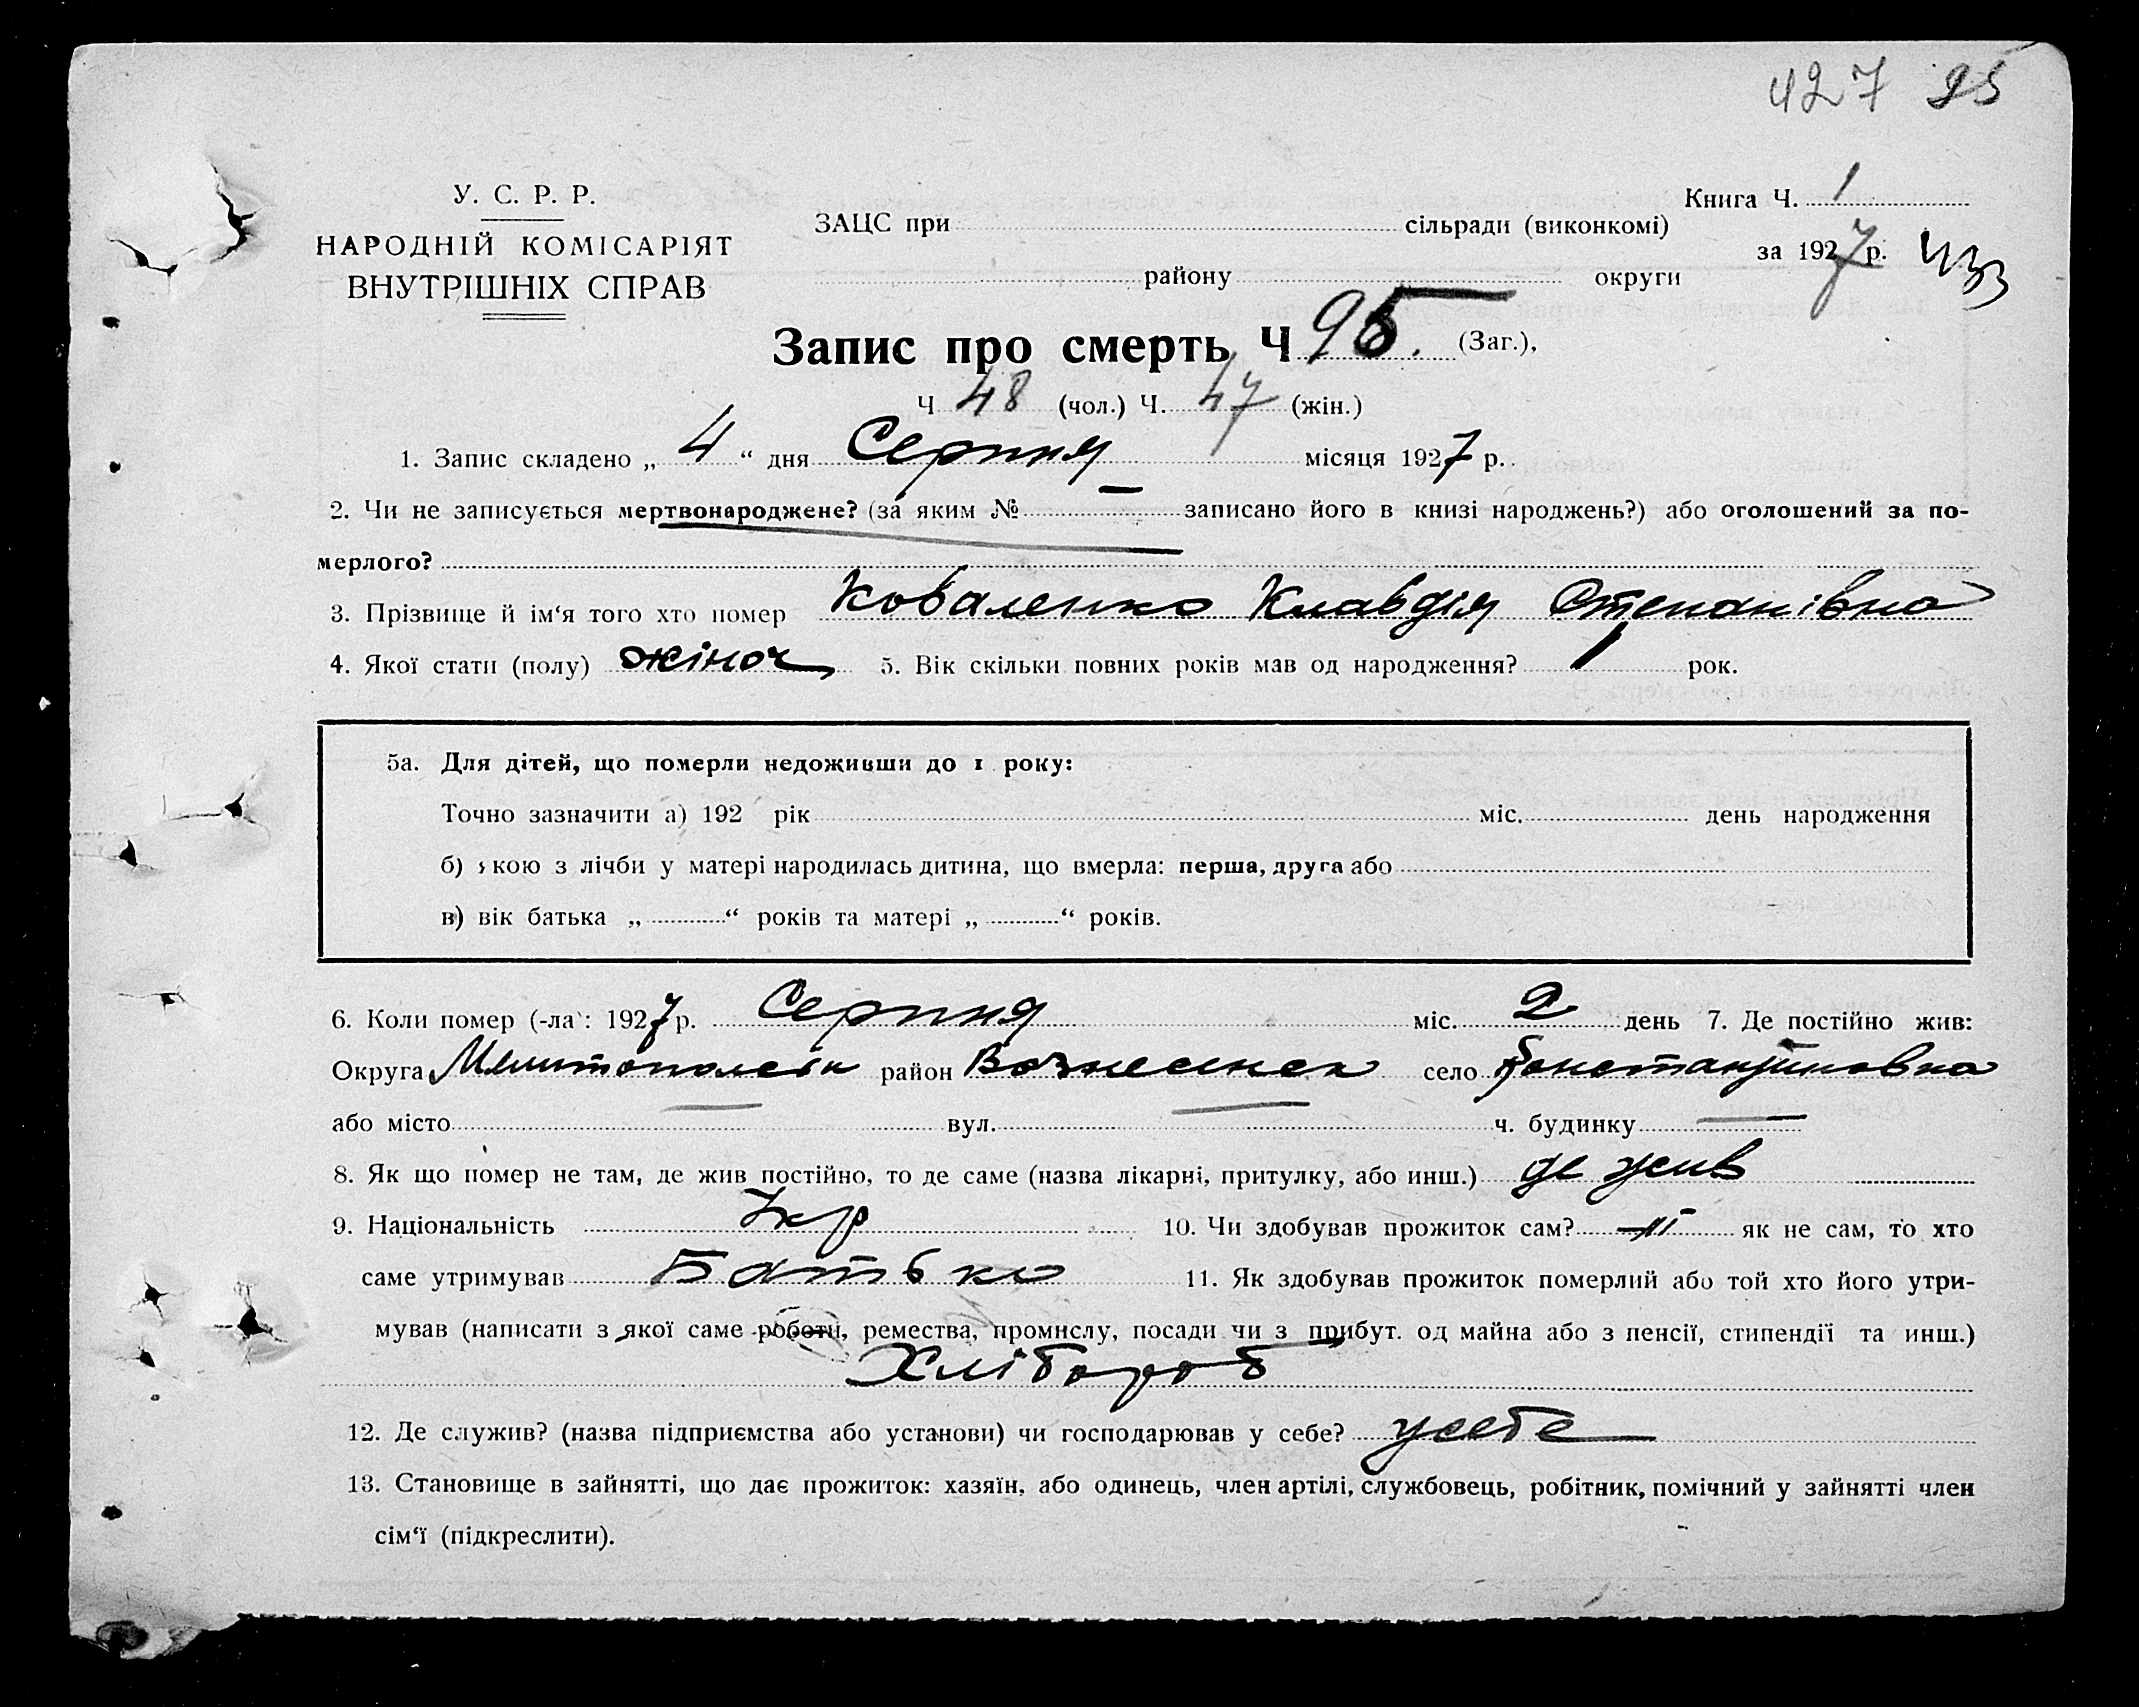 427 95
У. С. Р. Р.
НАРОДНІЙ КОМІСАРІЯТ
ВНУТРІШНІХ СПРАВ
Книга Ч. 1
за 1927 р. 433
ЗАЦС при сільради (виконкомі)
району округи
Запис про смерть Ч 95. (Заг.),
Ч 48 (чол.) Ч. 47 (жін.)
1. Запис складено „ 4 “ дня Серпня місяця 1927 р.
2. Чи не записується мертвонароджене? (за яким № — записано його в книзі народжень?) або оголошений за по-
мерлого?
3. Прізвище й ім‘я того хто помер Коваленко Клавдія Степанівна
4. Якої стати (полу) жіноч 5. Вік скільки повних років мав од народження? 1 рок.
5а. Для дітей, що померли недоживши до 1 року:
Точно зазначити а) 192 рік міс. день народження
б) якою з лічби у матері народилась дитина, що вмерла: перша, друга або
в) вік батька „ “ років та матері „ “ років.
6. Коли помер (-ла): 1927 р. Серпня міс. 2 день 7. Де постійно жив:
Округа Мелитополськ район Вознесенск село Константиновка
або місто — вул. — ч. будинку —
8. Як що помер не там, де жив постійно, то де саме (назва лікарні, притулку, або инш.) де жив
9. Національність Укр 10. Чи здобував прожиток сам? як не сам, то хто
саме утримував Батько 11. Як здобував прожиток померлий або той хто його утри-
мував (написати з якої саме роботи, ремества, промислу, посади чи з прибут. од майна або з пенсії, стипендії та инш.)
Хлібороб
12. Де служив? (назва підприємства або установи) чи господарював у себе? у себе
13. Становище в зайнятті, що дає прожиток: хазяїн, або одинець, член артілі, службовець, робітник, помічний у зайнятті член
сім‘ї (підкреслити).